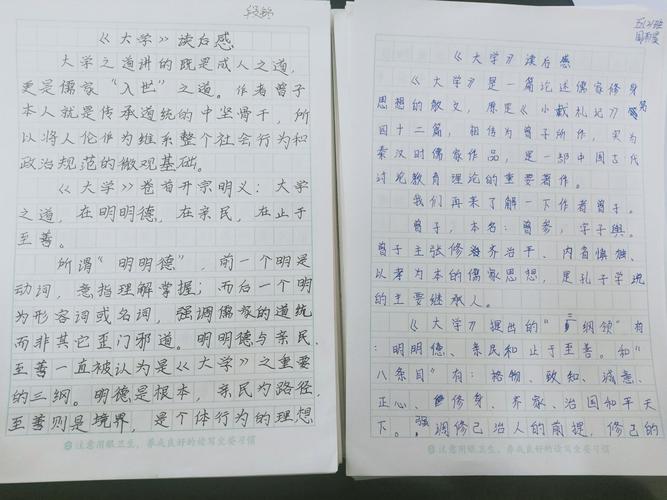 段舒
《大学》读后感
大学之道讲的既是成人之道,
更是儒家“入世”之道。作者曾子
本人就是传承道统的中坚骨干,所
以将人伦作为维系整个社会行为和
政治规范的微观基础。
《大学》卷首开宗明义:大学
之道,在明明德,在亲民,在止于
至善。
所谓“明明德”,前一个明是
动词,意指理解掌握;而后一个明
为形容词或名词,强调儒家的道统
而非其它歪门邪道。明明德与亲民、
至善一直被认为是《大学》之重要
的三纲。明德是根本,亲民为路径,
至善则是境界,是个体行为的理想
注意用眼卫生,养成良好的读写坐姿习惯
《大学》读后感
《大学》是一篇论述儒家修身
思想的散文,原是《小戴礼记》第
四十二篇,相传为曾子所作,实为
秦汉时儒家作品,是一部中国古代
讨论教育理论的重要著作。
我们再来了解一下作者曾子。
曾子,本名:曾参,字子舆。
曾子主张修齐治平、内省慎独、
以孝为本的儒家思想,是孔子学说
的主要继承人。
《大学》提出的“三纲领”有
:明明德、亲民和止于至善。和“
八条目”有:格物、致知、诚意、
正心、修身、齐家、治国和平天
下。强调修己治人的前提,修己的
注意用眼卫生,养成良好的读写坐姿习惯